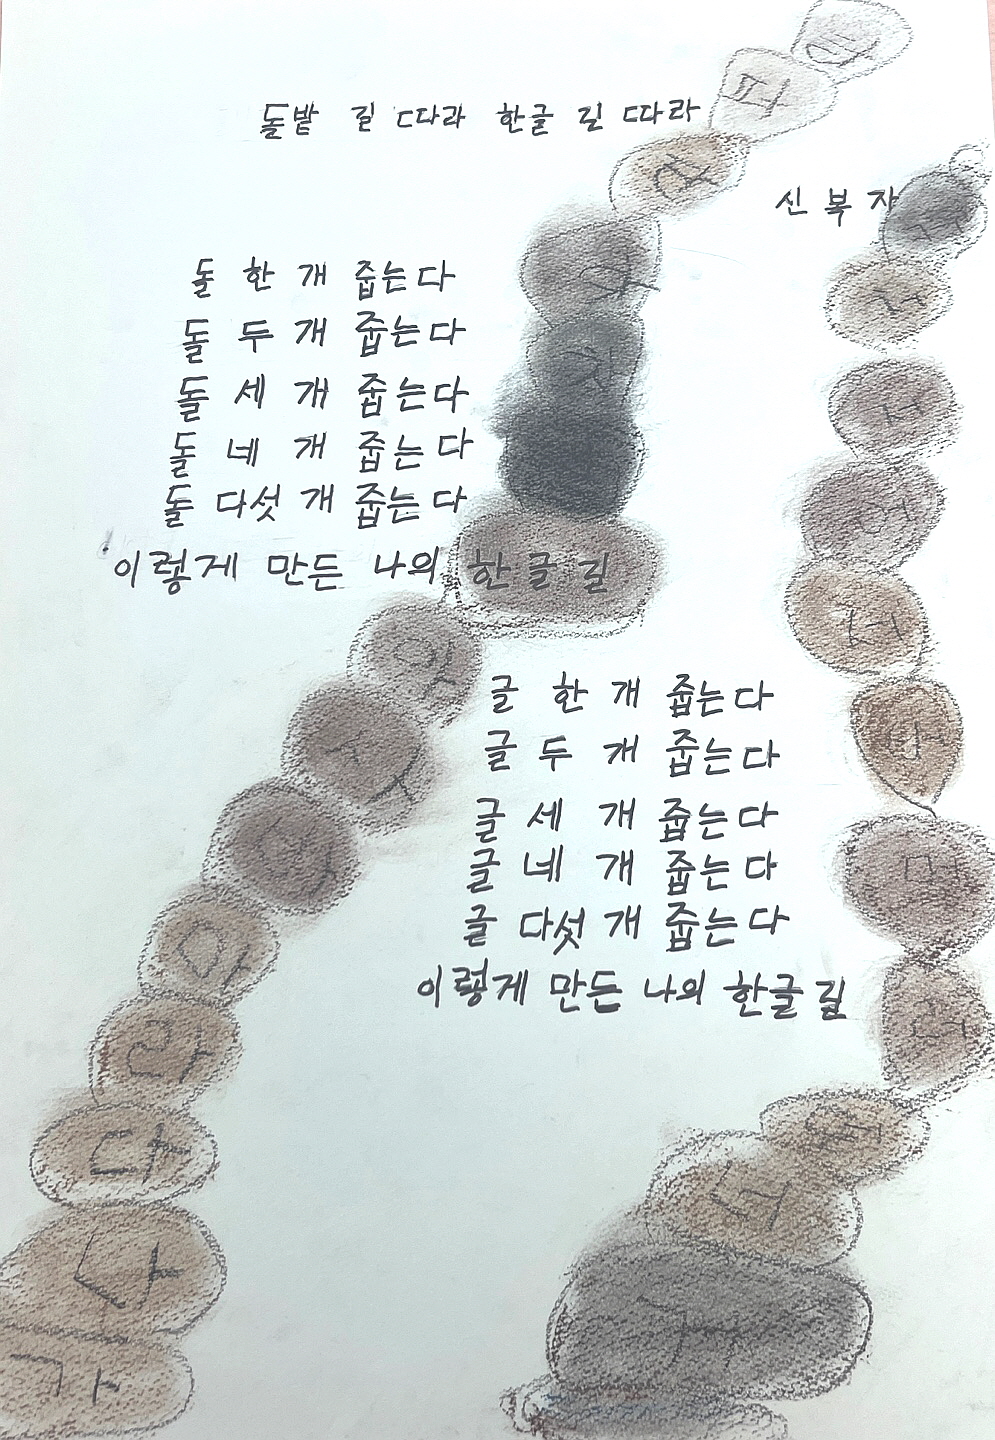 돌밭 길 따라 한글 길 따라
신복자
돌 한 개 줍는다
돌 두 개 줍는다
돌 세 개 줍는다
돌 네 개 줍는다
돌 다섯 개 줍는다
이렇게 만든 나의 한글 길
글 한 개 줍는다
글 두 개 줍는다
글 세 개 줍는다
글 네 개 줍는다
글 다섯 개 줍는다
이렇게 만든 나의 한글 길
파
카
아
사
바
마
라
다
나
가
저
서
버
머
러
더
너